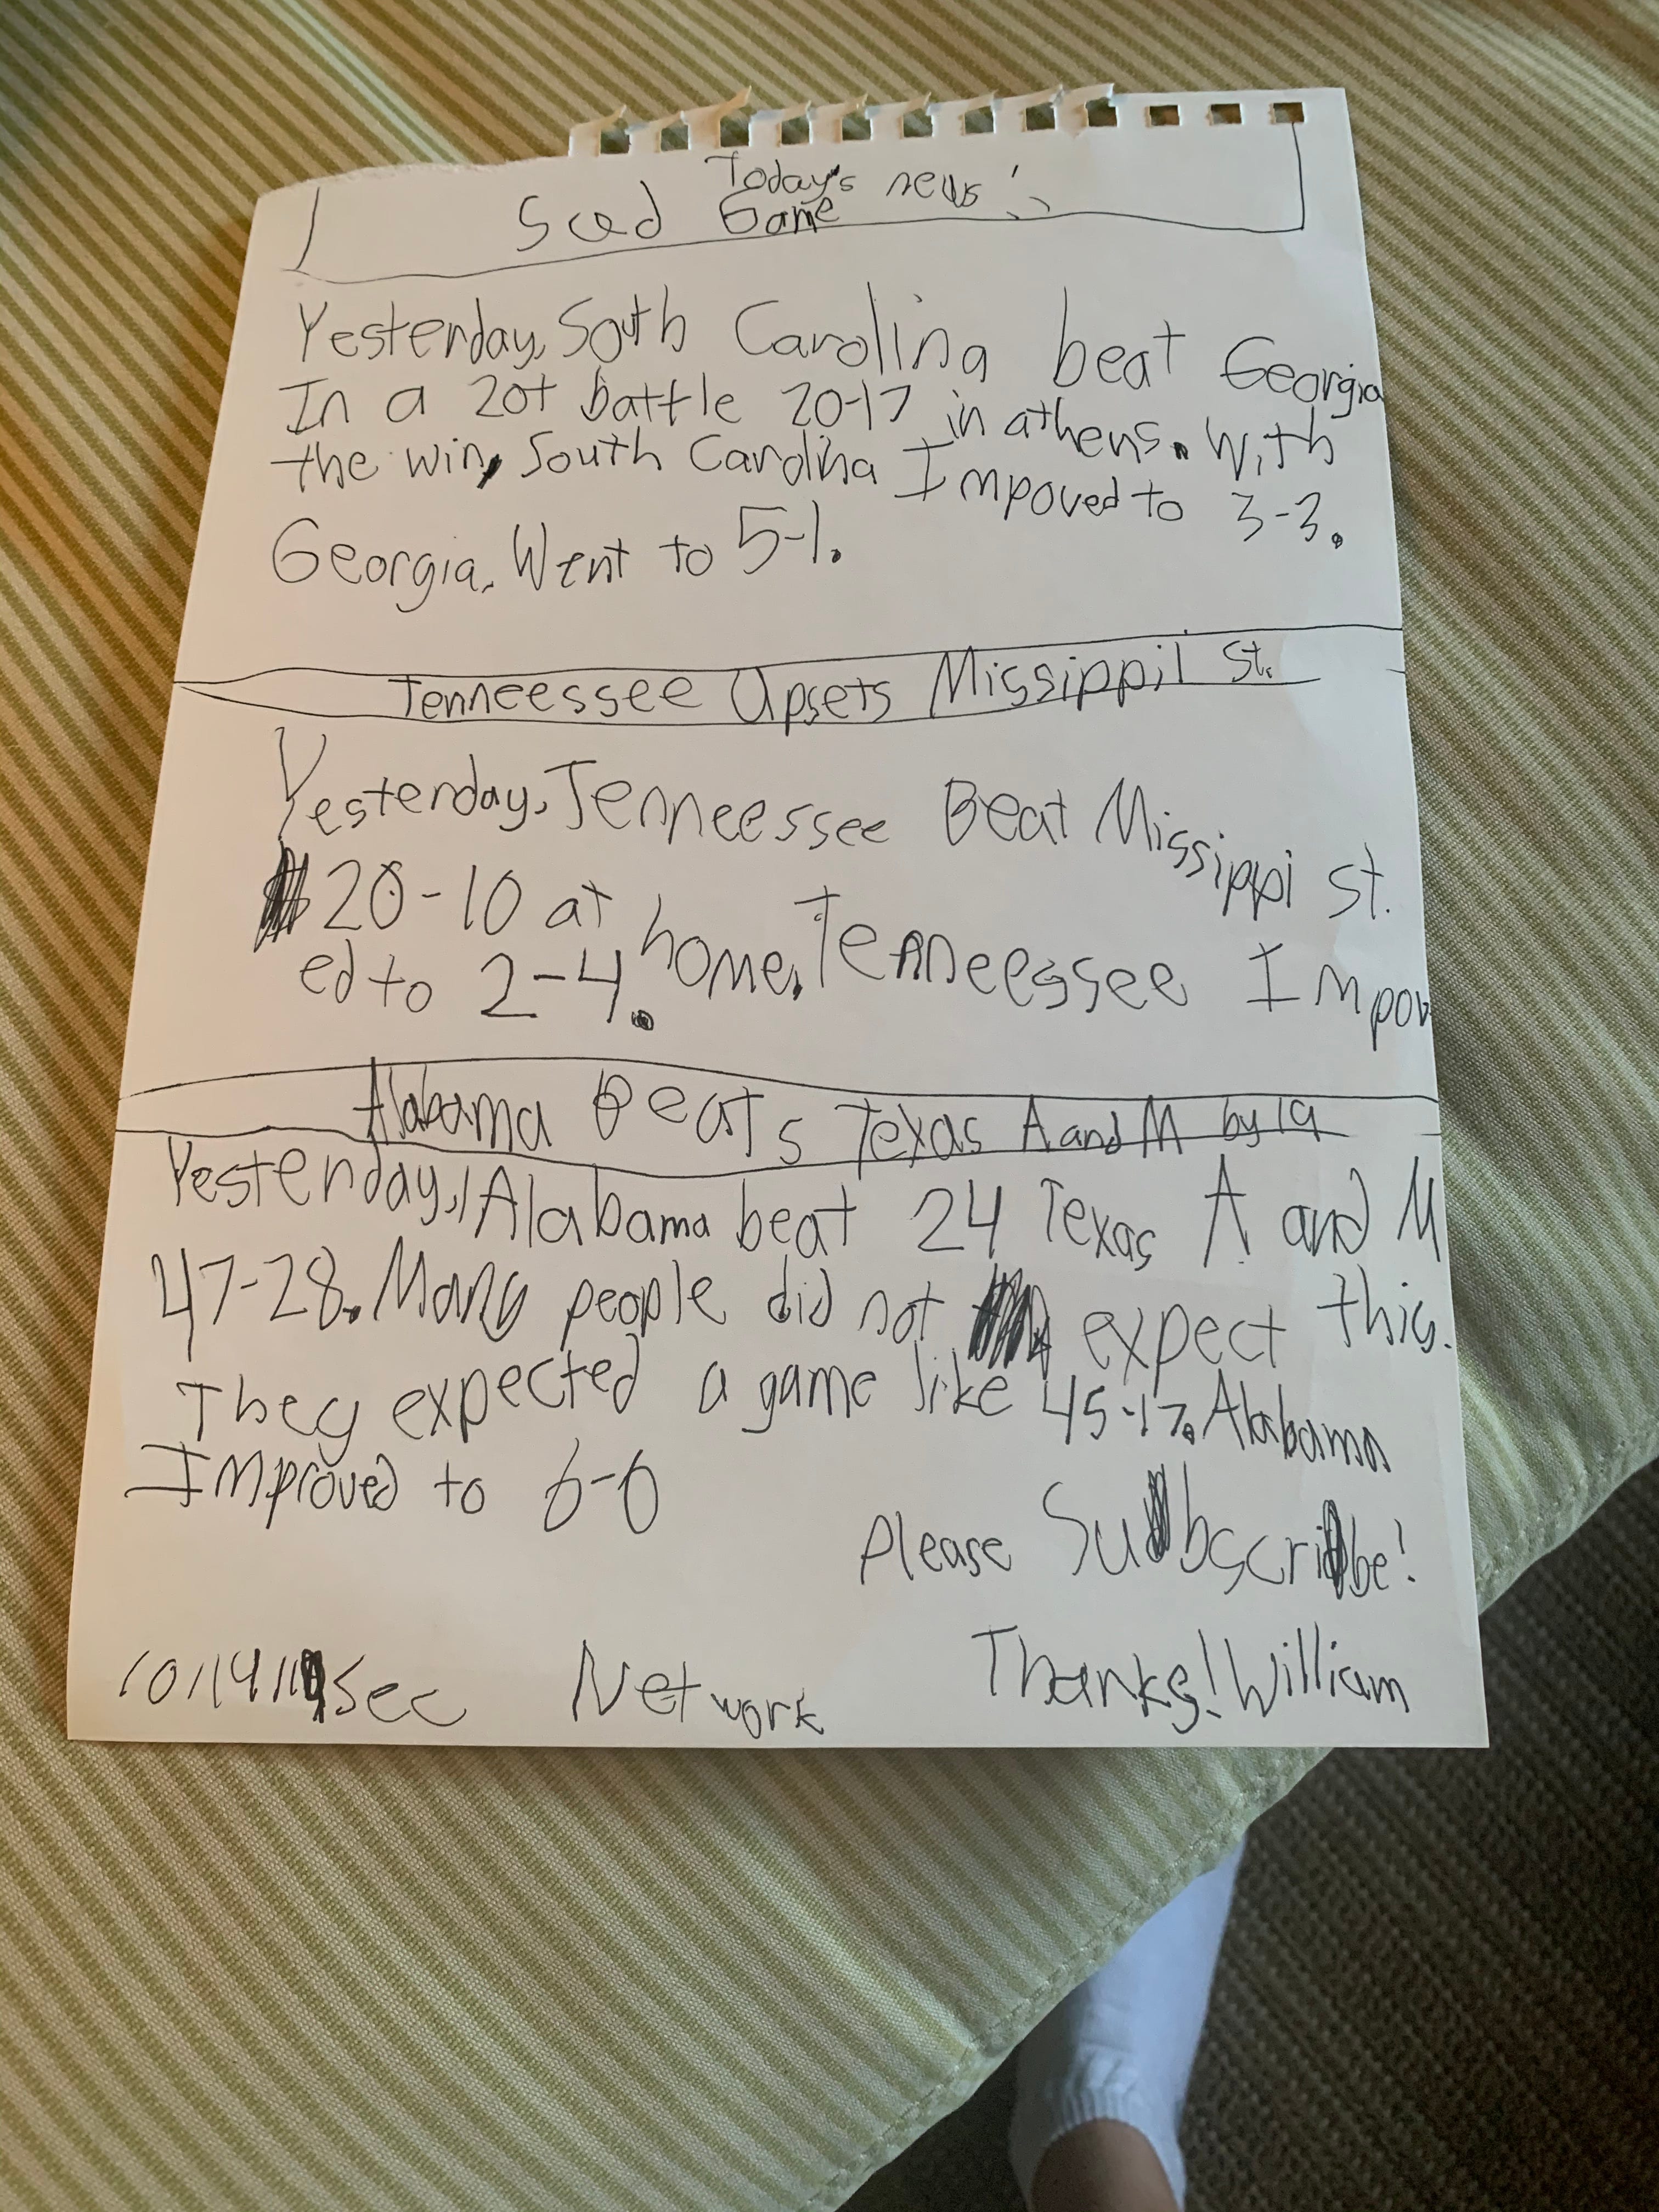 Today's news
Game
Yesterday, South Carolina beat Georgia
In a 2ot battle 20-17 in athens. With
the win, South Carolina Impoved to 3-3.
Georgia. Went to 5-1.
Tenneessee Upsets Missippil St.
Yesterday, Tenneessee Beat Missippi st.
20-10 at home. Tenneessee Impov
ed to 2-4.
Alabama Beats Texas A and M by 19
Yesterday, Alabama beat 24 Texas A and M
47-28. Many people did not expect this.
They expected a game like 45-17. Alabama
Improved to 6-0
Please Subscribe!
Thanks! William
10/14/19 Sec Network